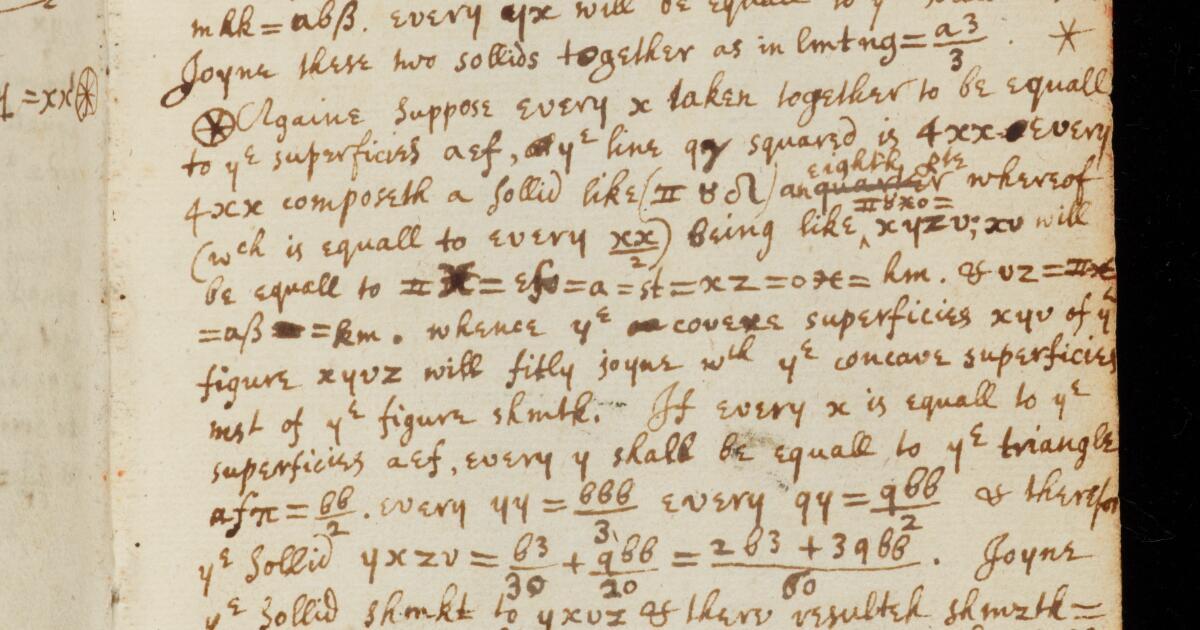 mkk = abβ. every yx will be equall to y
Joyne these two sollids together as in lmtng = a3/3. *
q = xx
Againe Suppose every x taken together to be equall
to yᵉ superficies aef, yᵉ line qy squared is 4xx Every
4xx composeth a sollid like (♊ ♉ ♌) an eighth pte whereof
(wch is equall to every xx/2) being like ^ xyzv; xv will
be equall to ♊ = ef = a = st = xz = = km. & vz =
= aβ = km. whence yᵉ covexe superficies xyv of yᵉ
figure xyvz will fitly joyne wth yᵉ concave superficies
mst of yᵉ figure shmtk. If every x is equall to yᵉ
superficies aef, every y shall be equall to yᵉ triangle
afπ = bb/2. every yy = bbb/3. every qy = qbb/2 & therefor
yᵉ Sollid yxzv = b3/30 + qbb/20 = 2b3 + 3qbb/60. Joyne
yᵉ Sollid shmkt to yxvz & there resulteth shmztk =